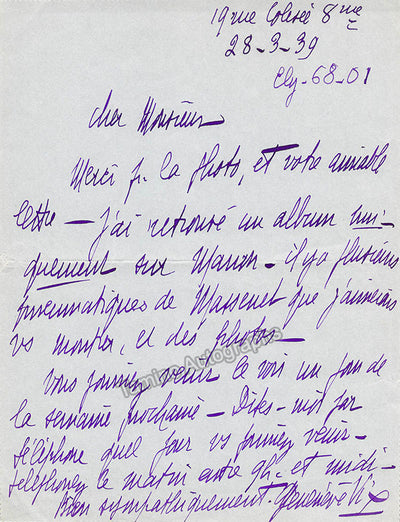 19 rue Colisée 8me
28-3-39
Ely-68-01
cher Monsieur
Merci pr. la photo, et votre aimable
lettre — j'ai retrouvé un album uni-
quement sur Manon - il y a plusieurs
pneumatiques de Massenet que j'aimerais
vs montrer, et des photos -
Vous pourriez venir le voir un jour de
la semaine prochaine - Dites-moi par
téléphone quel jour vs pourriez venir -
telephonez le matin entre 9h. et midi -
Bien sympathiquement. Geneviève Vix
TaminoAutographs